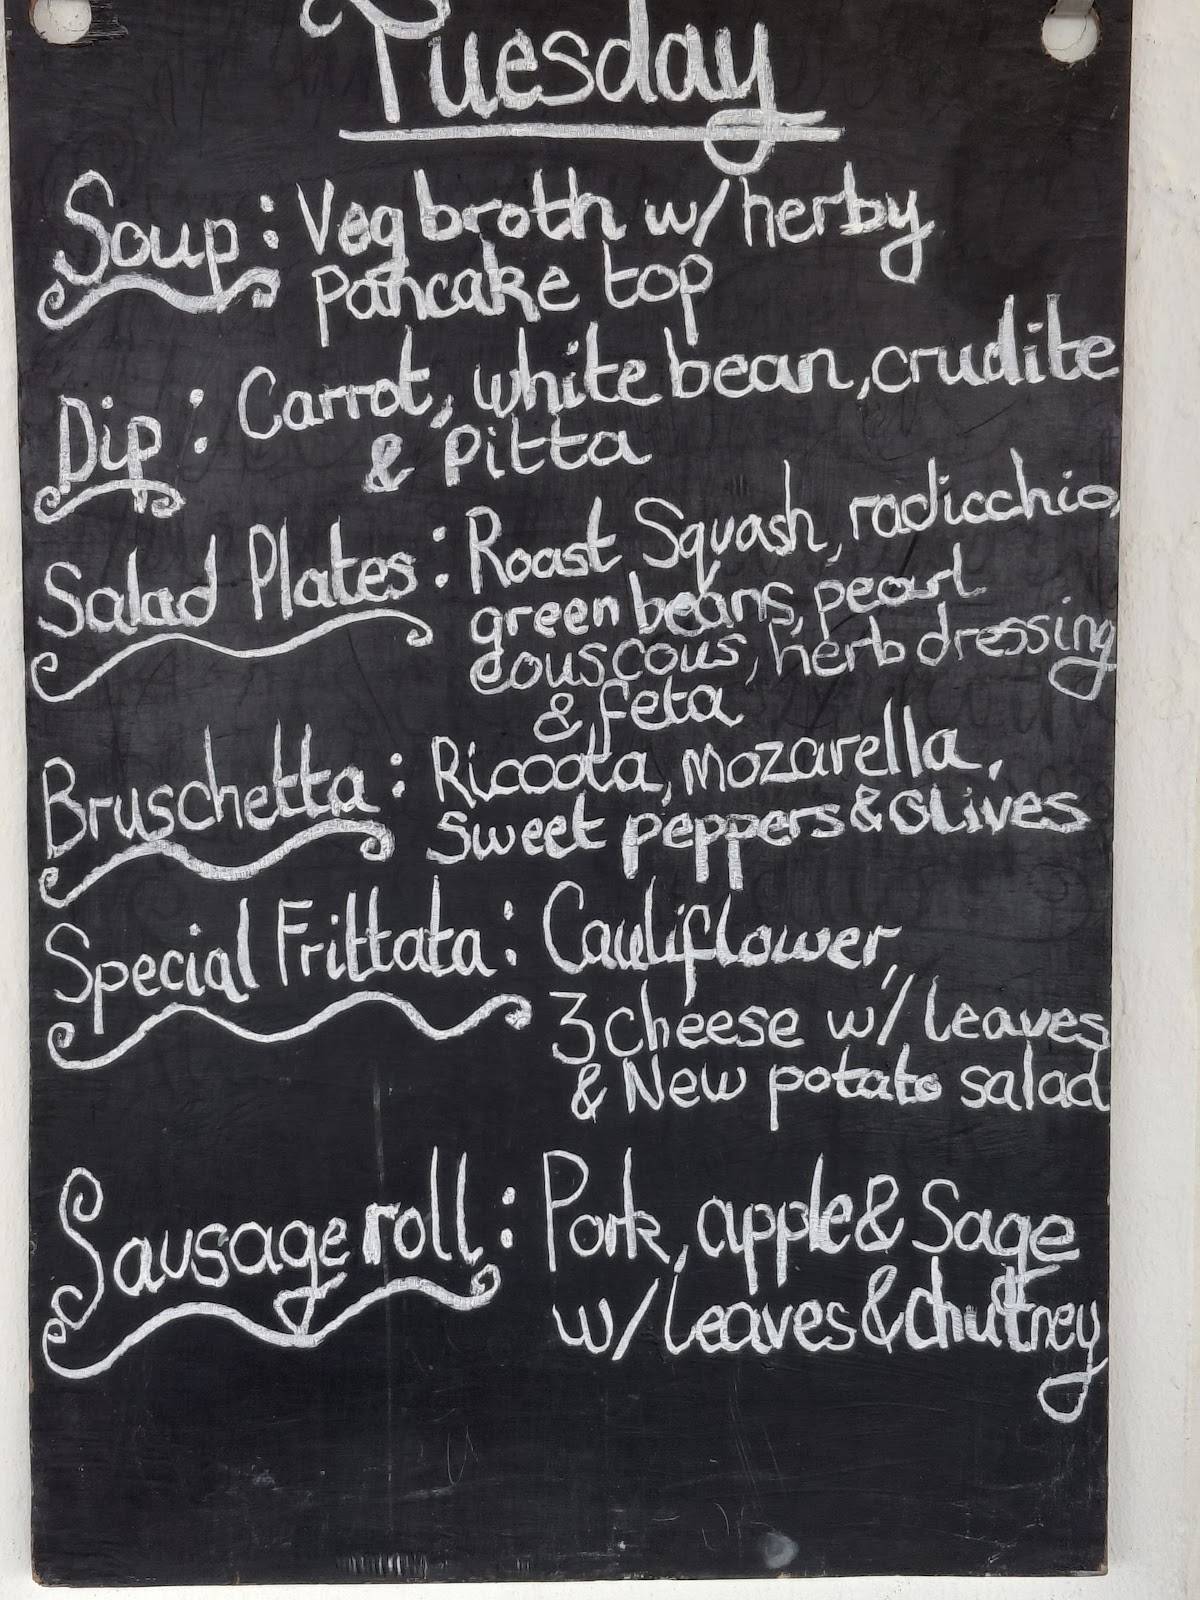 Tuesday
Soup: Veg broth w/ herby
pancake top
Dip: Carrot, white bean, crudite
& pitta
Salad Plates: Roast Squash, radicchio,
green beans, pearl
couscous, herb dressing
& feta
Bruschetta: Riccota, Mozarella,
sweet peppers & Olives
Special Frittata: Cauliflower,
3 cheese w/ leaves
& New potato salad
Sausage roll: Pork, apple & Sage
w/ leaves & chutney